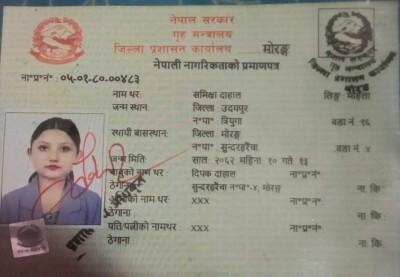 नेपाल सरकार
गृह मन्त्रालय
जिल्ला प्रशासन कार्यालय मोरङ्ग
नेपाली नागरिकताको प्रमाणपत्र
ना॰प्र॰नं॰ ०५-०१-८०-००४८३
नाम थर: समिक्षा दाहाल लिङ्ग महिला
जन्म स्थान: जिल्ला उदयपुर
न॰पा॰ त्रियुगा वडा नं १६
स्थायी बासस्थान: जिल्ला मोरङ्ग
न॰पा॰ सुन्दरहरैंचा वडा नं ४
जन्म मिति: साल: २०६२ महिना १० गते १३
बाबुको नाम थर: दिपक दाहाल ना॰प्र॰नं॰
ठेगाना: सुन्दरहरैंचा नपा-४, मोरङ्ग ना. कि
आमाको नामथर: xxx ना॰प्र॰नं॰
ठेगाना: ना. कि
पति/पत्नीको नामथर: xxx ना॰प्र॰नं॰
ठेगाना: ना. कि